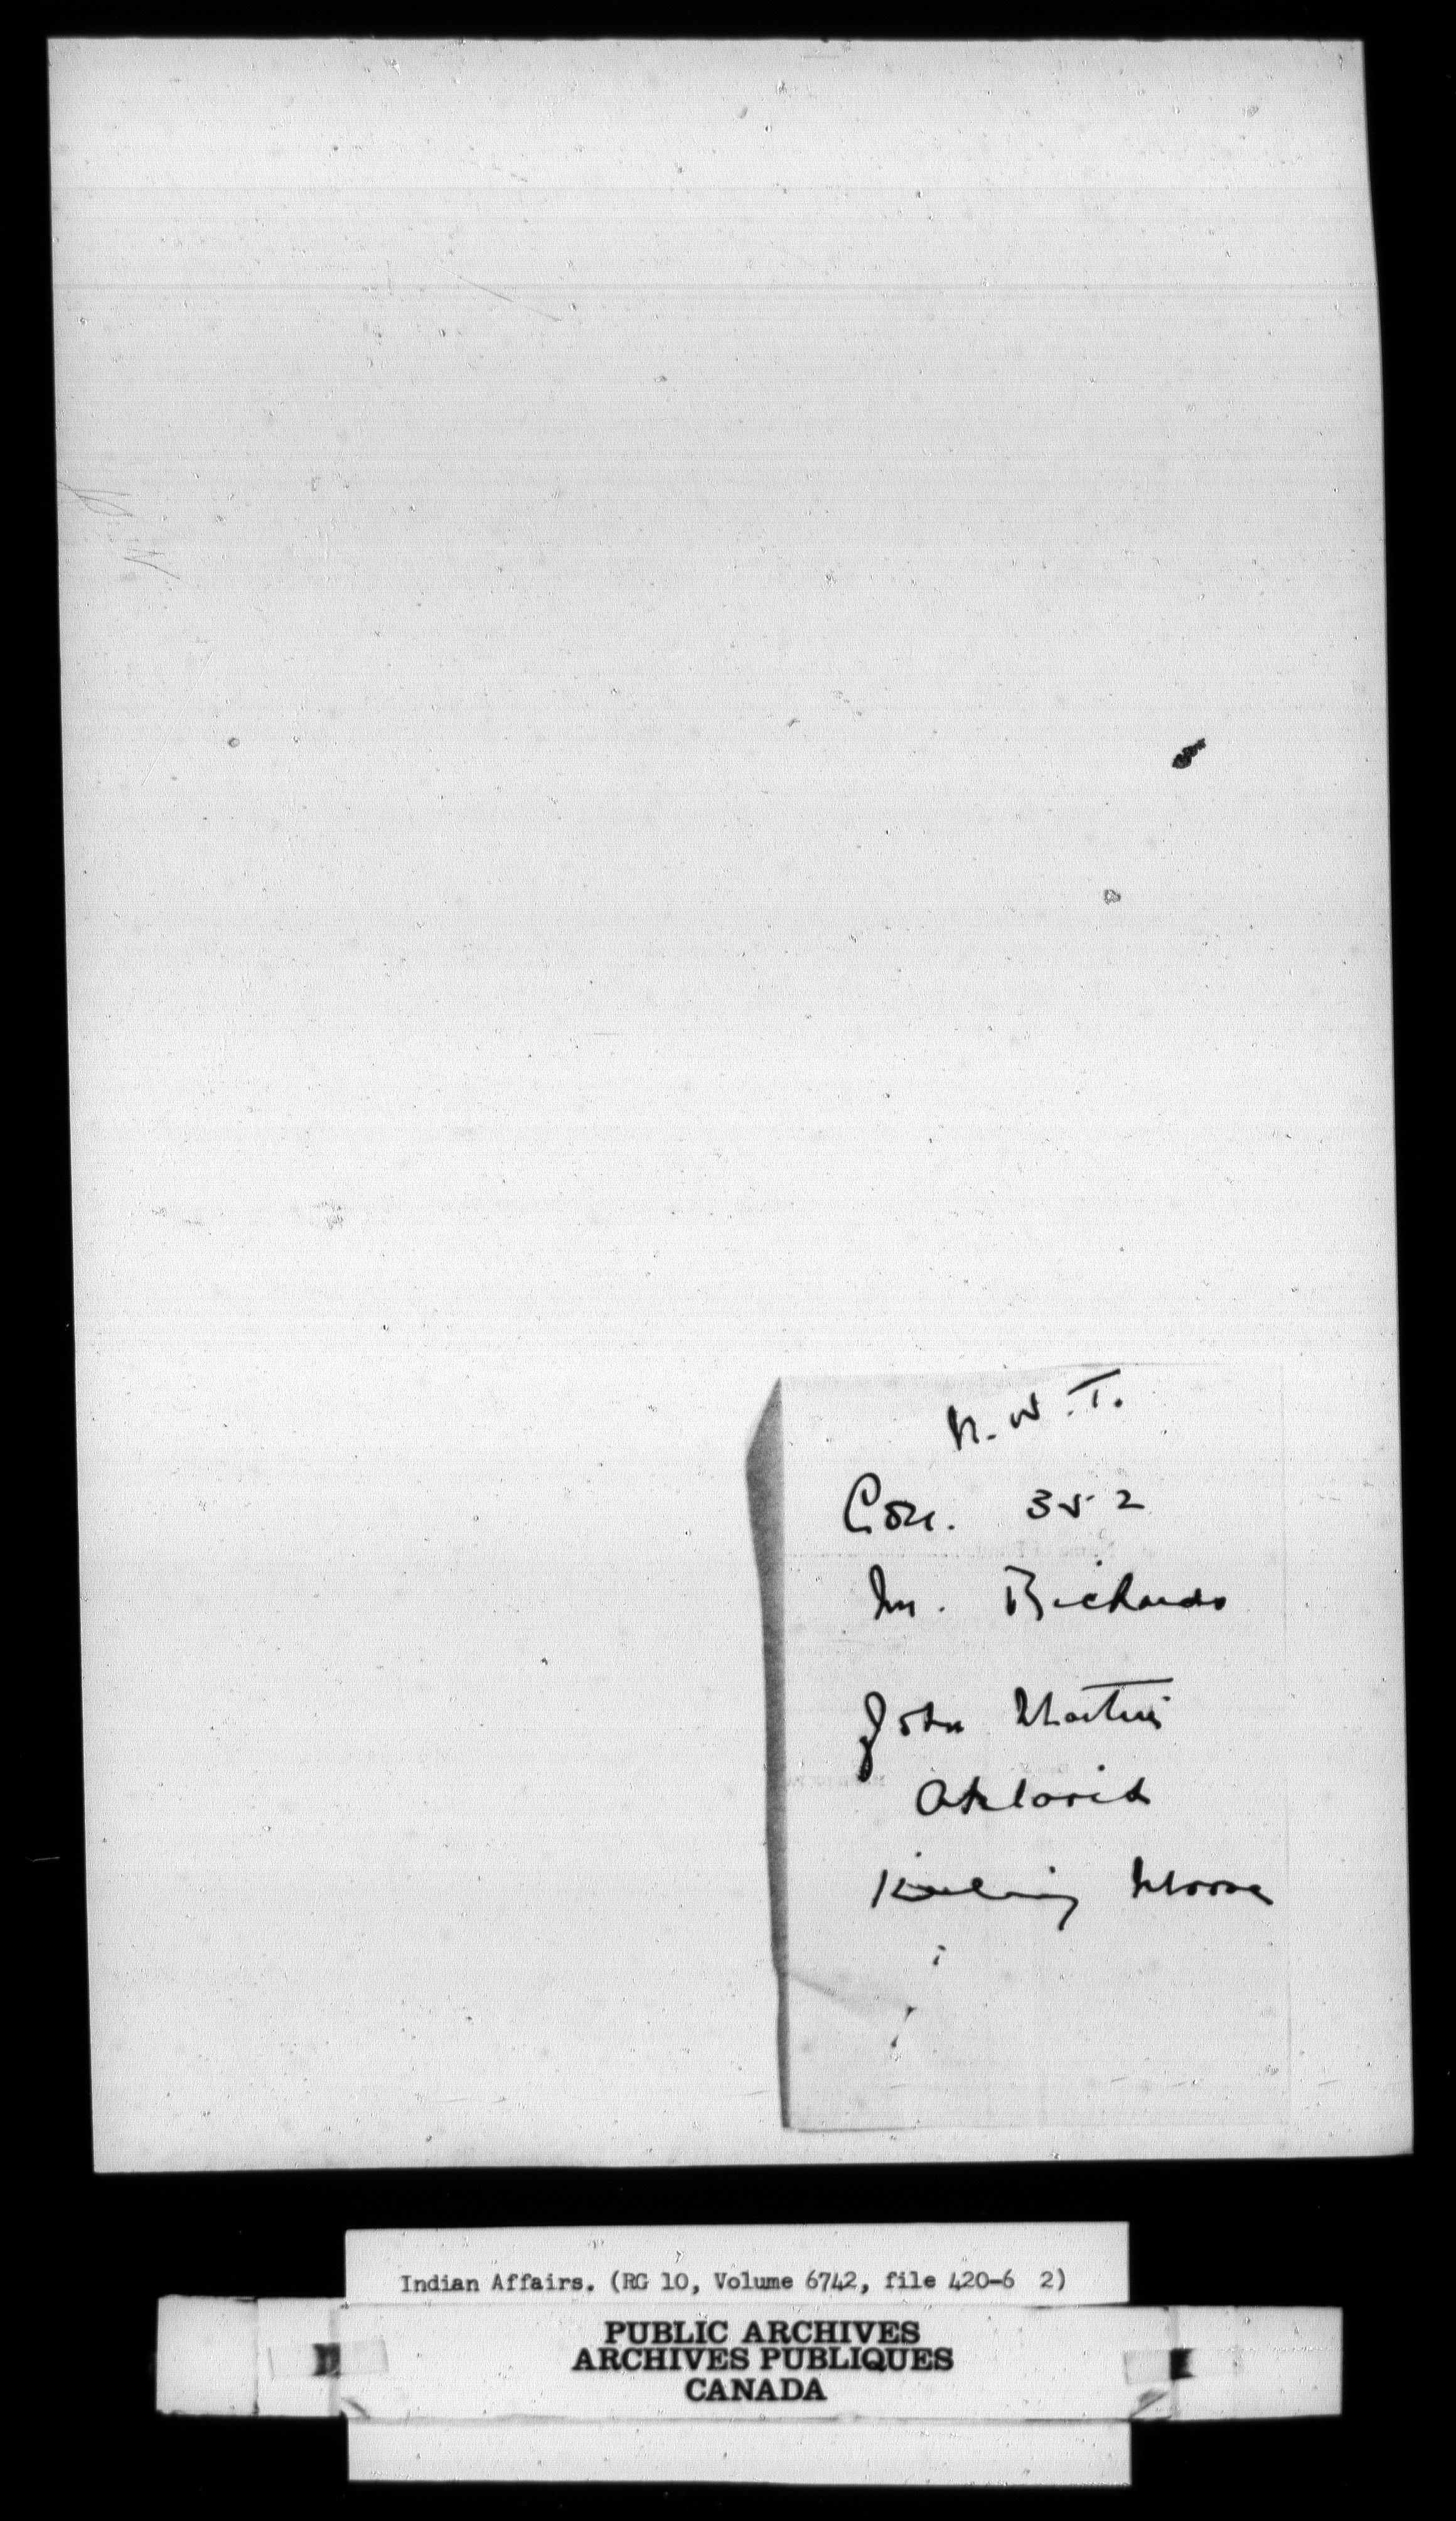 N. W. T.
Con. 352
Mr. Richards
John Martin
Aklavik
Killing Moose
Indian Affairs. (RG 10, Volume 6742, file 420-6 2)
PUBLIC ARCHIVES
ARCHIVES PUBLIQUES
CANADA